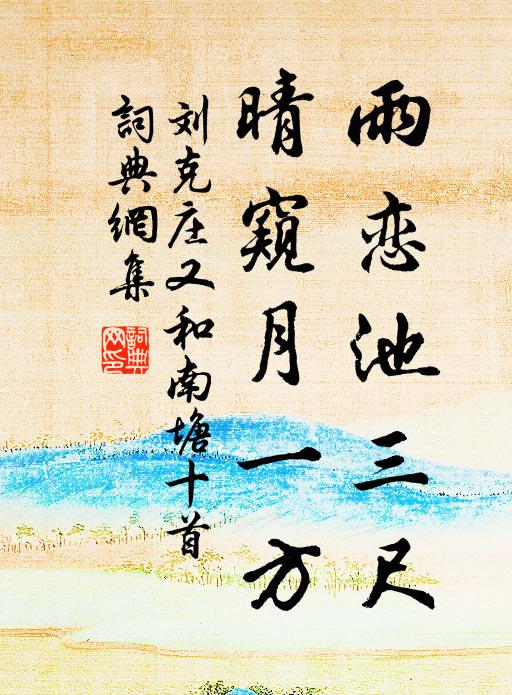 雨恋池三尺
晴窥月一方
刘克庄又和南塘十首
詞典網集
詞典網印